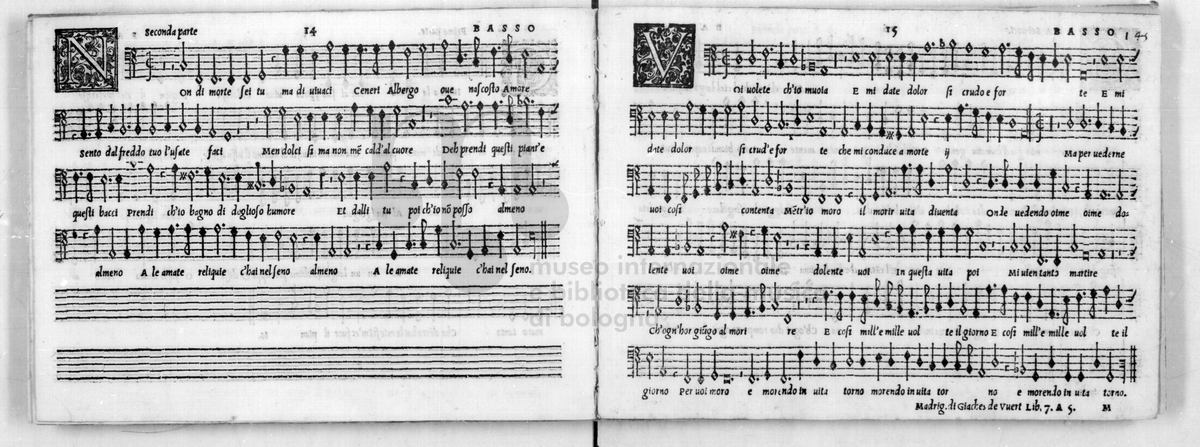 Seconda parte 14 BASSO
NOn di morte sei tu ma di uiuaci Ceneri Albergo oue nascosto Amore
Sento dal freddo tuo l'usate faci Men dolci si ma non mē cald'al cuore Deh prendi questi piant'e
questi bacci Prendi ch'io bagno di doglioso humore Et dalli tu poi ch'io nō posso almeno
almeno A le amate reliquie c'hai nel seno almeno A le amate reliquie c'hai nel seno.
15 BASSO 145
VOi uolete ch'io muoia E mi date dolor si crudo e for te E mi
date dolor si crud'e for te che mi conduce a morte ij Ma per uederne
uoi cosi contenta Mētr'io moro il morir uita diuenta Onde uedendo oime oime do=
lente uoi oime oime dolente uoi In questa uita poi Mi uien tanto martire
Ch'ogn'hor giūgo al mori re E cosi mill'e mille uol te il giorno E cosi mill'e mille uol te il
giorno Per uoi moro e morendo in uita torno morendo in uita tor no e morendo in uita torno.
Madrig. di Giaches de Vuert Lib. 7. A 5. M
museo internazionale
e biblioteca della musica
di bologna